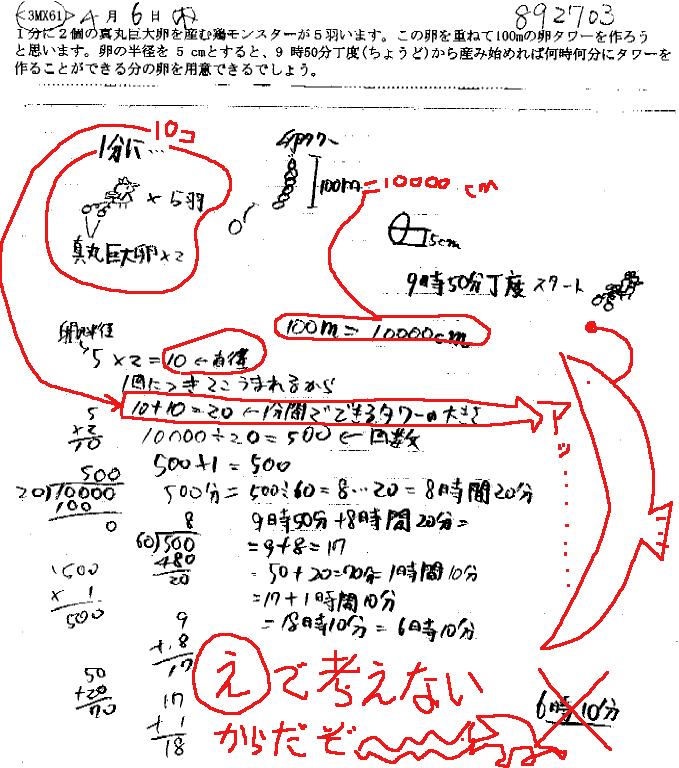 <3MX61> 4月6日(木) 892703
1分に2個の真丸巨大卵を産む鶏モンスターが5羽います。この卵を重ねて100mの卵タワーを作ろう
と思います。卵の半径を 5 cmとすると、9 時50分丁度(ちょうど)から産み始めれば何時何分にタワーを
作ることができる分の卵を用意できるでしょう。
10コ
1分に…
×5羽
真丸巨大卵×2
卵タワー
100m=10000cm
5cm
9時50分丁度スタート
100m=10000cm
卵の半径
5×2=10←直径
1回につき2こうまれるから
10+10=20←1分間でできるタワーの大きさ
アッ……
5
×2
10
10000÷20=500←回数
500÷1=500
500
20)10000
100
0
500分=500÷60=8…20=8時間20分
8
60)500
480
20
9時50分+8時間20分=
=9+8=17
=50+20=70分=1時間10分
=17+1時間10分
=18時10分=6時10分
500
×1
500
9
+8
17
50
+20
70
17
+1
18
えで考えない
からだぞ
6時10分